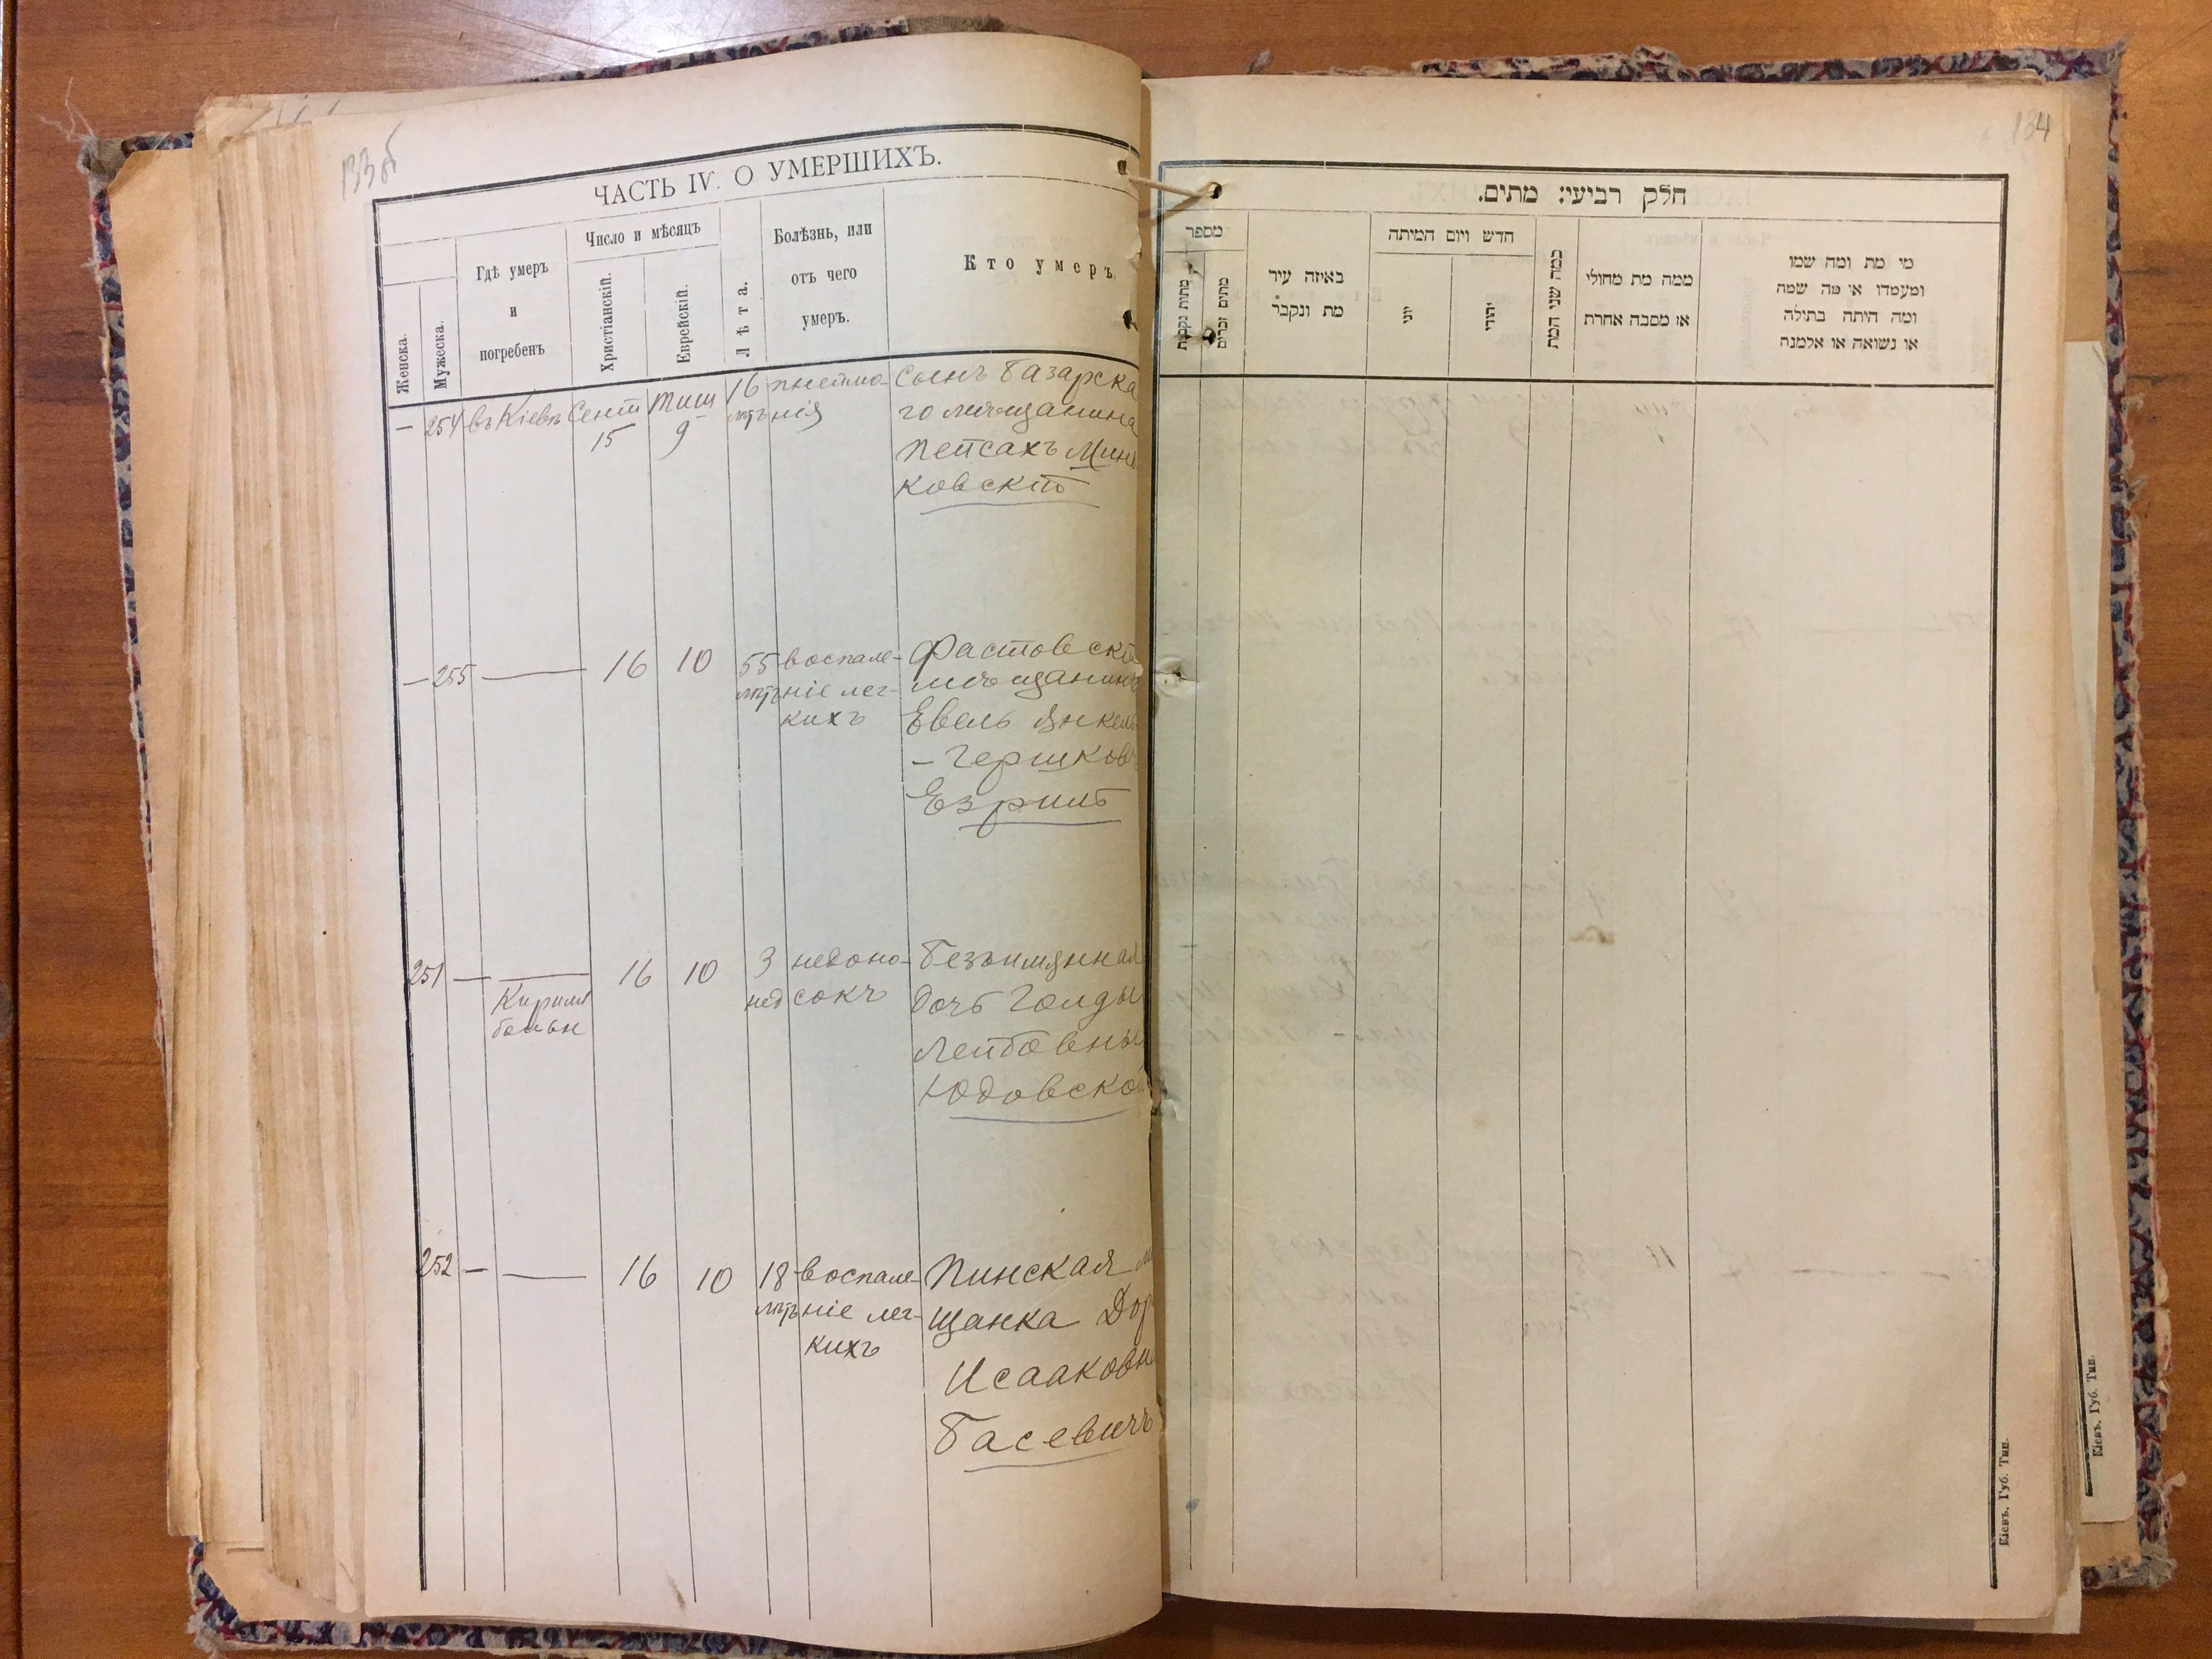 133б
ЧАСТЬ IV. О УМЕРШИХЪ.
Женска.
Мужеска.
Гдѣ умеръ
и
погребенъ
Число и мѣсяцъ
Христіанскій.
Еврейскій.
Лѣта.
Болѣзнь, или
отъ чего
умеръ.
Кто умеръ.
— 254 въ Кіевѣ Сент 15 Тиш 9 16 лѣтъ
пнеймо-
нія
Сынъ Базарска
го мѣщанина
Пейсахъ Мин
ковскій
— 255 — 16 10 55 лѣтъ
воспале-
ніе лег-
кихъ
Фастовскій
мѣщанинъ
Евель Янкель
- Гершков
Езрилъ
251 — — 16 10 3 нед
Кирилл
больн
недоно-
сокъ
Безъимянная
дочь Голды
Лейбовны
Юдовской
252 — — 16 10 18 лѣтъ
воспале-
ніе лег-
кихъ
Пинская м
щанка Дор
Исааковн
Басевичъ
134
חלק רביעי: מתים.
מספר
מתות נקבות
מתים זכרים
באיזה עיר
מת ונקבר
חדש ויום המיתה
יוני
יהודי
כמה שני המת
ממה מת מחולי
או מסבה אחרת
מי מת ומה שמו
ומעמדו או מה שמה
ומה היתה בתולה
או נשואה או אלמנה
Кіевъ. Губ. Тип.
Кіевъ. Губ. Тип.